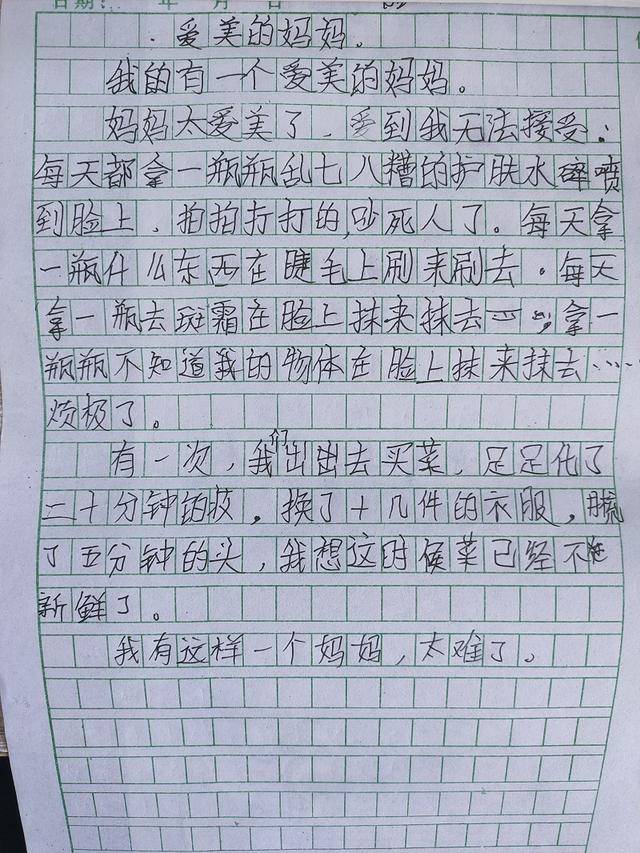 日期： 年 月 日
爱美的妈妈。
我的有一个爱美的妈妈。
妈妈太爱美了，爱到我无法接受：
每天都拿一瓶瓶乱七八糟的护肤水喷
到脸上，拍拍打打的，吵死人了。每天拿
一瓶什么东西在睫毛上刷来刷去。每天
拿一瓶去斑霜在脸上抹来抹去，拿一
瓶瓶不知道我的物体在脸上抹来抹去……
烦极了。
有一次，我们出出去买菜，足足化了
二十分钟的妆，换了十几件的衣服，梳
了五分钟的头，我想这时候菜已经不
新鲜了。
我有这样一个妈妈，太难了。